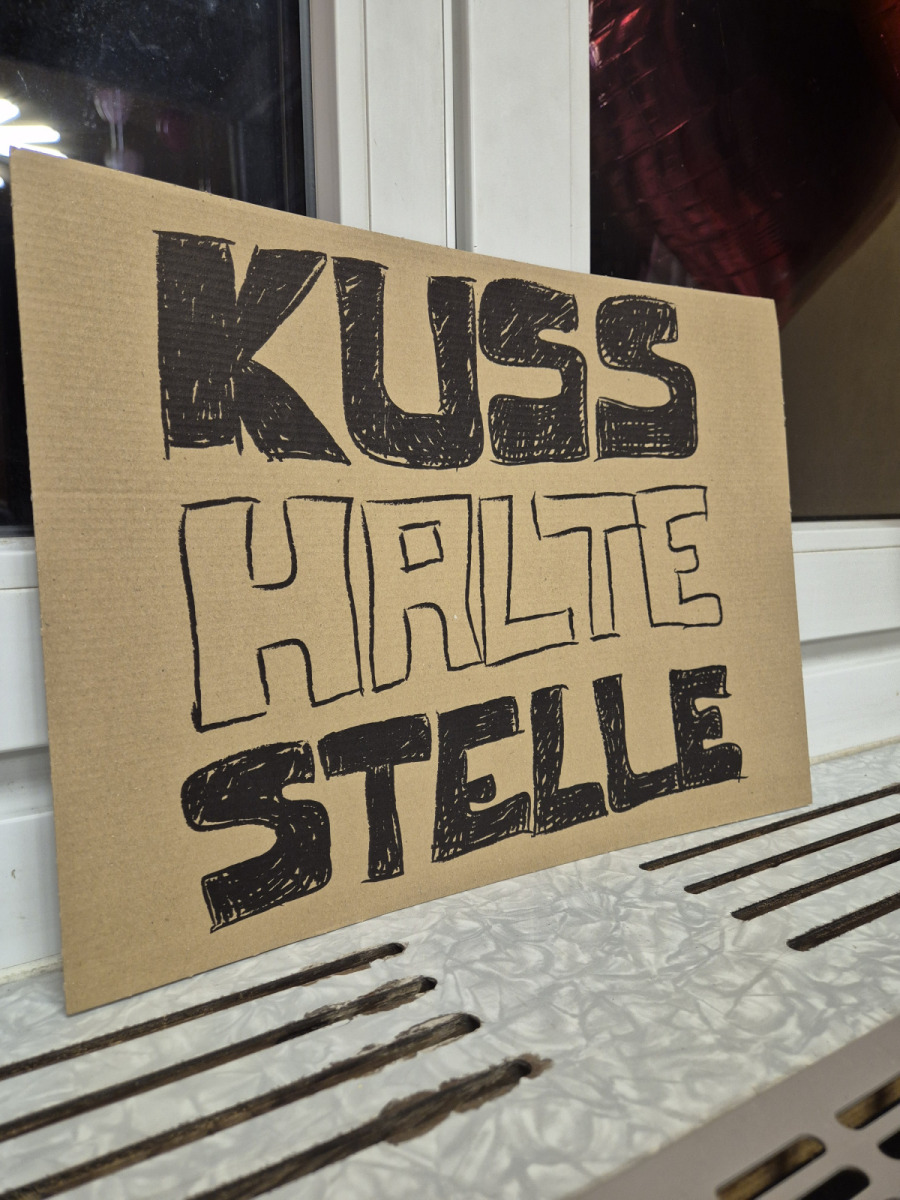 KUSS
HALTE
STELLE